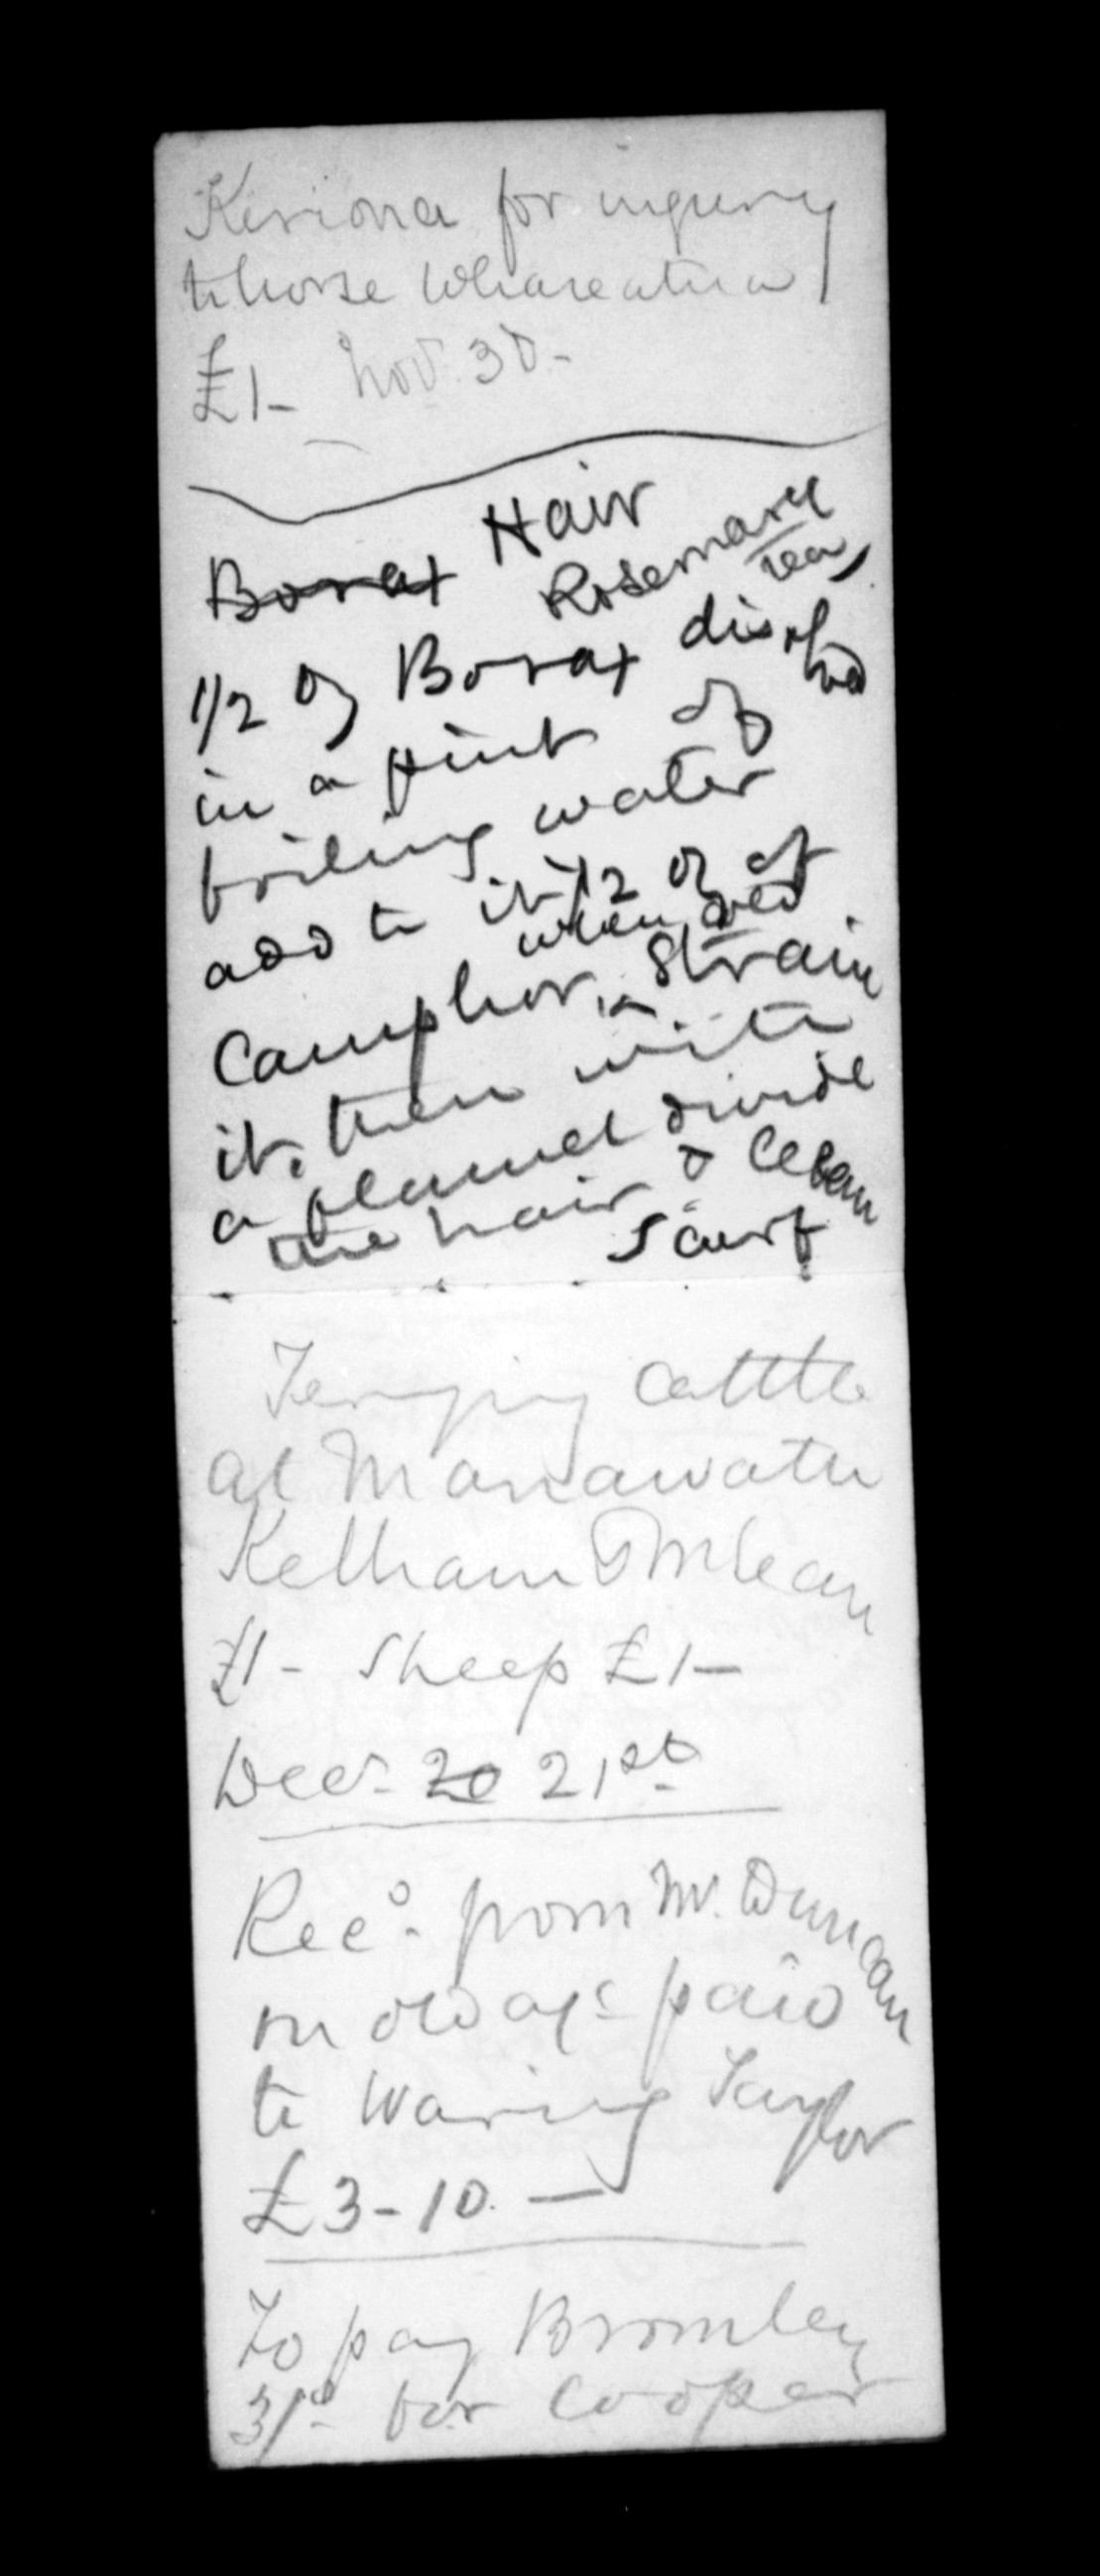 Keriona for injury
to horse Whareatua
£1 - Nov. 30 -
Hair
Borax Rosemary
tea,
1/2 oz Borax dissolved
in a pint of
boiling water
add to it 1/2 oz of
Camphor, when cold strain
it, then with
a flannel divide
the hair & clean
scurf
Ferrying cattle
at Manawatu
Kelham & McLean
£1 - Sheep £1 -
Decr. 20 21st
Recd. from Mr. Duncan
on old a/c paid
to Waring Taylor
£3-10. -
To pay Bromley
31/- for Cooper